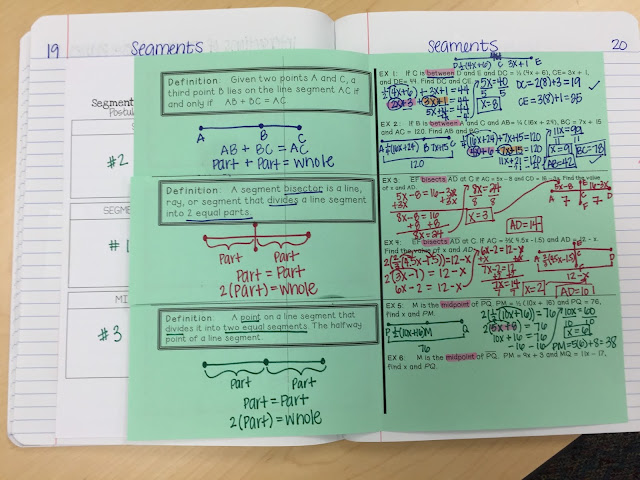 19
Segments
Segment
Postul
#2
SEGME
#1
MI
#3
Definition: Given two points A and C, a
third point B lies on the line segment AC if
and only if AB + BC = AC
A B C
AB + BC = AC
Part + Part = whole
Definition: A segment bisector is a line,
ray, or segment that divides a line segment
into 2 equal parts.
Part Part
Part = Part
2(Part) = whole
Definition: A point on a line segment that
divides it into two equal segments. The halfway
point of a line segment
Part Part
Part = Part
2(Part) = whole
Segments
20
D ½(4x+6) C 3x+1 E
EX 1: If C is between D and E and DC = ½ (4x + 6), CE= 3x + 1,
and DE= 44. Find DC and CE.
½(4x+6) + 3x+1 = 44
2x+3 + 3x+1 = 44
5x+4 = 44
5x = 40
5 5
x = 8
DC = 2(8)+3 = 19
CE = 3(8)+1 = 25
EX 2: If B is between A and C and AB= ¼ (16x + 24), BC= 7x + 15
and AC = 120. Find AB and BC.
A ¼(16x+24) B 7x+15 C
120
¼(16x+24) + 7x+15 = 120
4x+6 + 7x+15 = 120
11x+21 = 120
11x = 99
11 11
x = 9
BC = 78
AB = 42
EX 3: EF bisects AD at C. If AC = 5x - 8 and CD = 16 - 3x. Find the value
of x and AD.
5x-8 = 16-3x
+3x +3x
8x-8 = 16
+8 +8
8x = 24
8x = 24
8 8
x = 3
5x-8 16-3x
A 7 C 7 D
AD = 14
EX 4: EF bisects AD at C. If AC = ⅔( 4.5x -1.5) and AD = 12 - x.
Find the value of x and AD.
2(⅔(4.5x-1.5)) = 12-x
2(3x-1) = 12-x
6x-2 = 12-x
6x-2 = 12-x
+x +x
7x-2 = 12
7x = 14
x = 2
12-x
AD = 10
EX 5: M is the midpoint of PQ, PM = ½ (10x + 16) and PQ = 76,
find x and PM.
P ½(10x+16) M Q
76
2(½(10x+16)) = 76
2(5x+8) = 76
10x+16 = 76
-16 -16
10x = 60
10 10
x = 6
PM = 5(6)+8 = 38
EX 6: M is the midpoint of PQ. PM = 9x + 3 and MQ = 11x - 17,
find x and PQ.